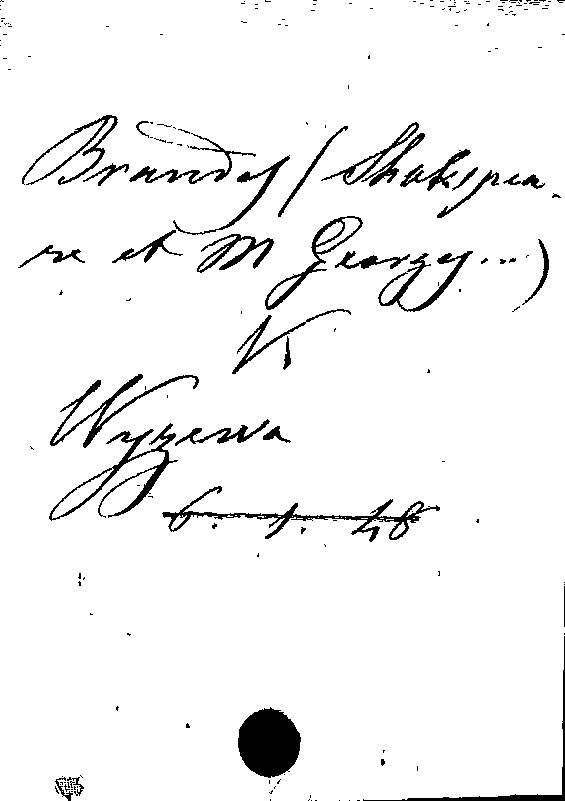 Brandes (Shakspea-
re et M Georges...)
V.
Wyzewa
6. 1. 48